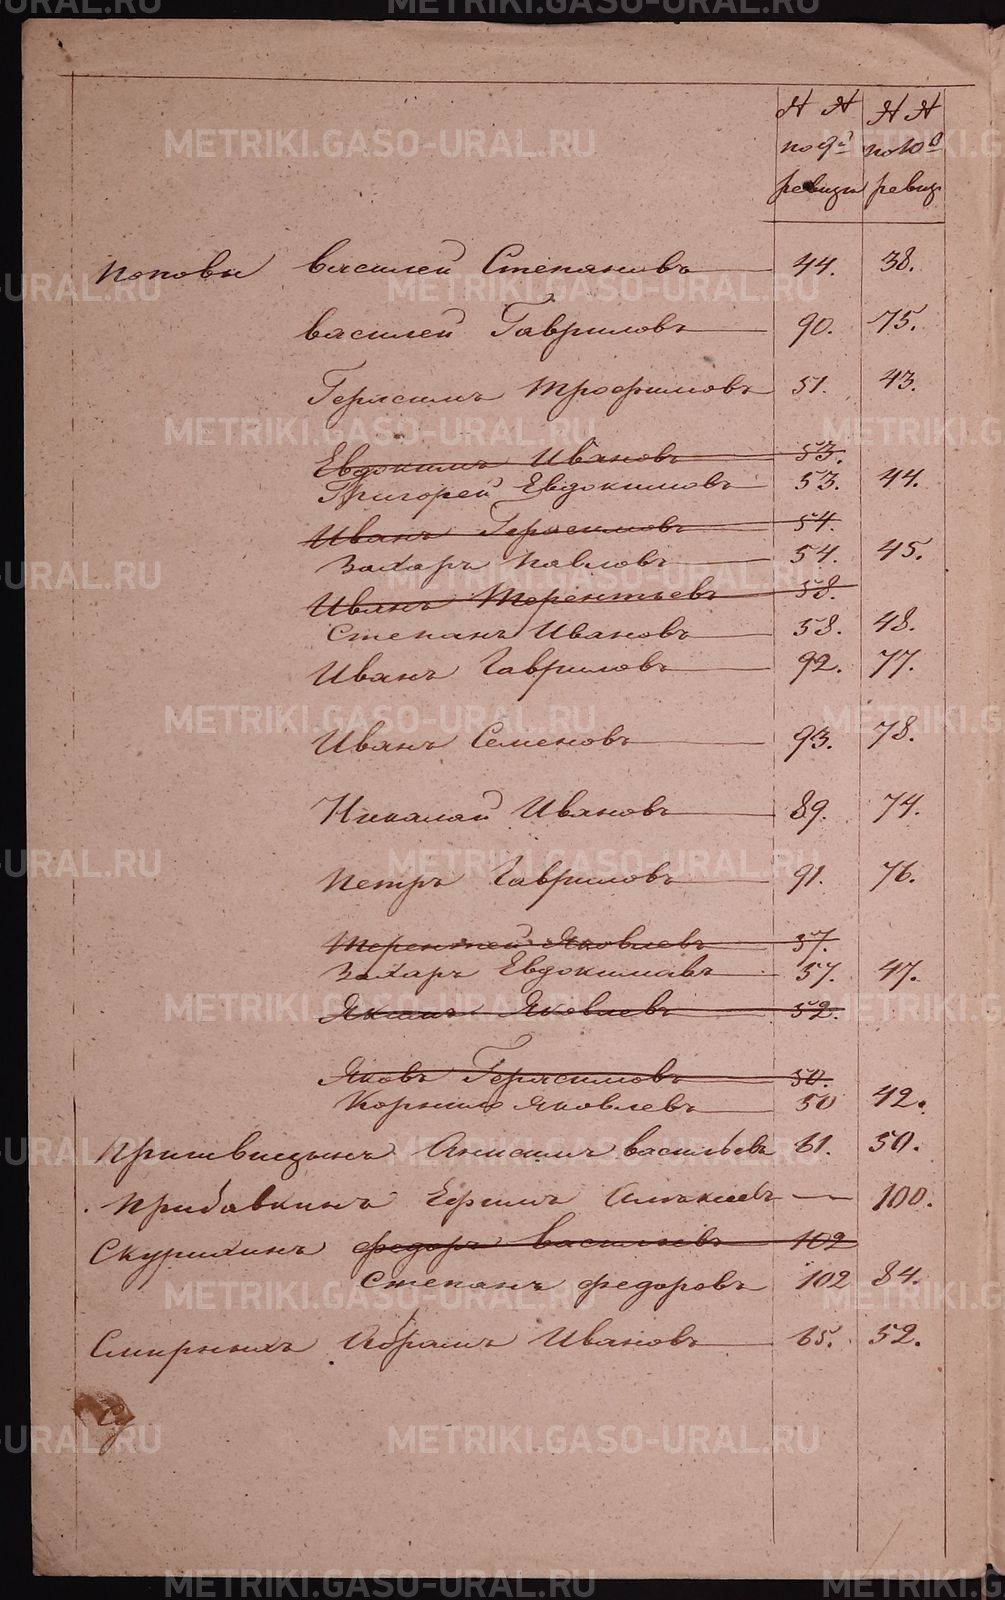 № № № №
по 9й по 10й
ревизи ревиз
Поповы Василей Степановъ 44. 38.
Василей Гавриловъ 90. 75.
Герасимъ Трофимовъ 51. 43.
Евдокимъ Ивановъ 53.
Григорей Евдокимовъ 53. 44.
Иванъ Герасимовъ 54.
Захаръ Павловъ 54. 45.
Иванъ Терентьевъ 58.
Степанъ Ивановъ 58. 48.
Иванъ Гавриловъ 92. 77.
Иванъ Семеновъ 93. 78.
Николай Ивановъ 89. 74.
Петръ Гавриловъ 91. 76.
Терентей Яковлевъ 57.
Захаръ Евдокимовъ 57. 47.
Якимъ Яковлевъ 52.
Яковъ Герасимовъ 50.
Корнило Яковлевъ 50 42.
Анисимъ Васильевъ 61. 50.
Прибавкинъ Ефимъ 100.
Скурихинъ Федоръ Васильевъ 102
Степанъ Федоровъ 102 84.
Смирныхъ Абрамъ Ивановъ 65. 52.
METRIKI.GASO-URAL.RU